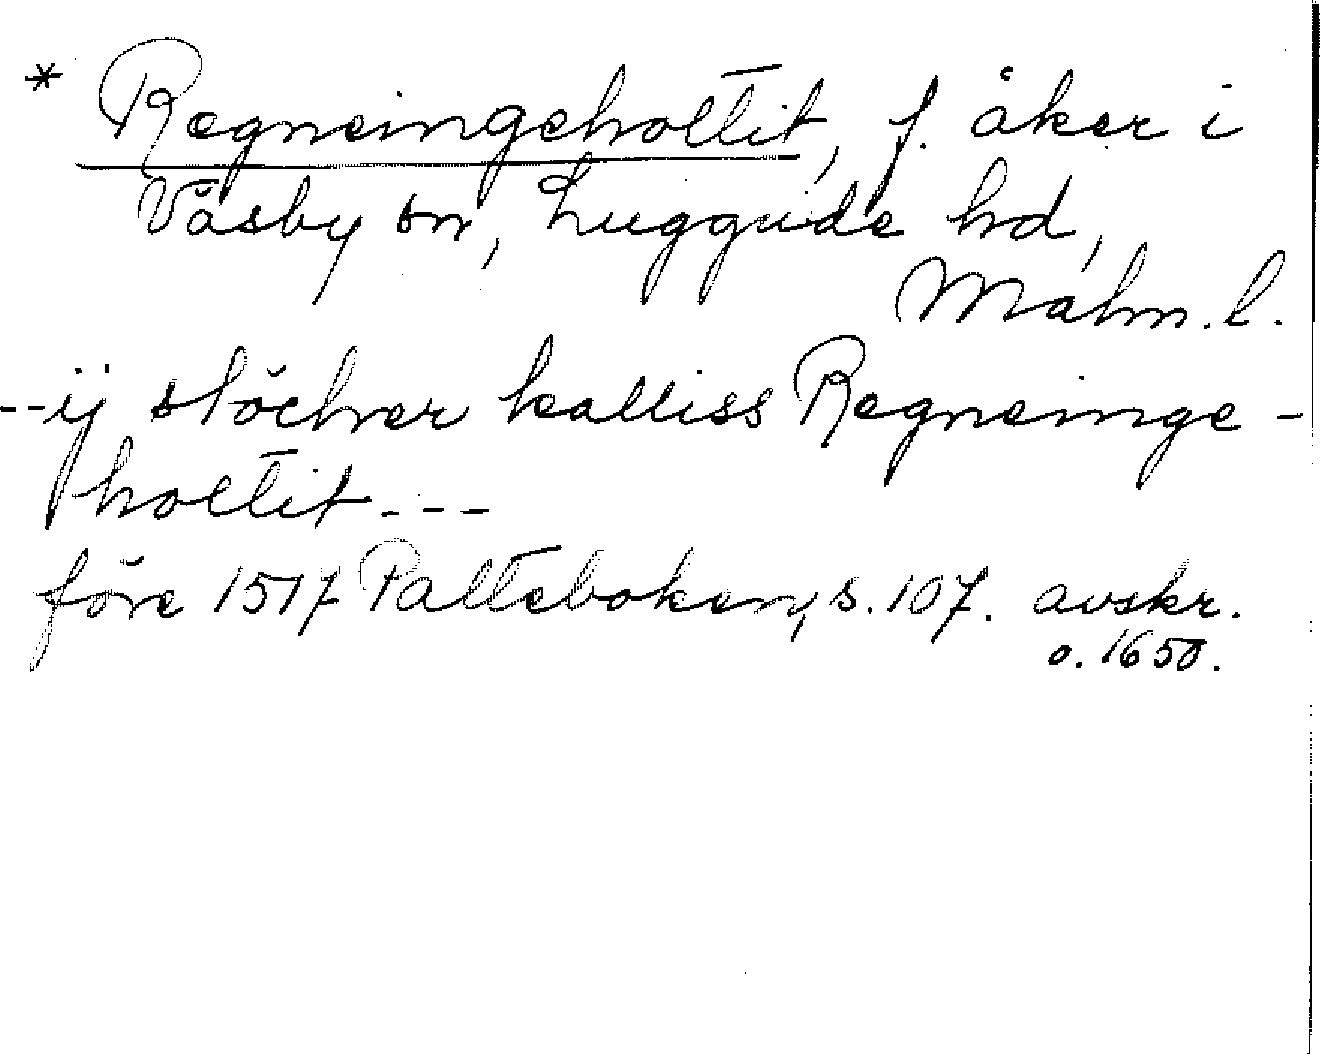 * Regneingehollit, f. åker i
Väsby sn, Luggude hd,
Malm. l.
--ij stöcher kalliss Regneinge-
holtit---
före 1517 Palteboken, s. 107. avskr.
o. 1650.